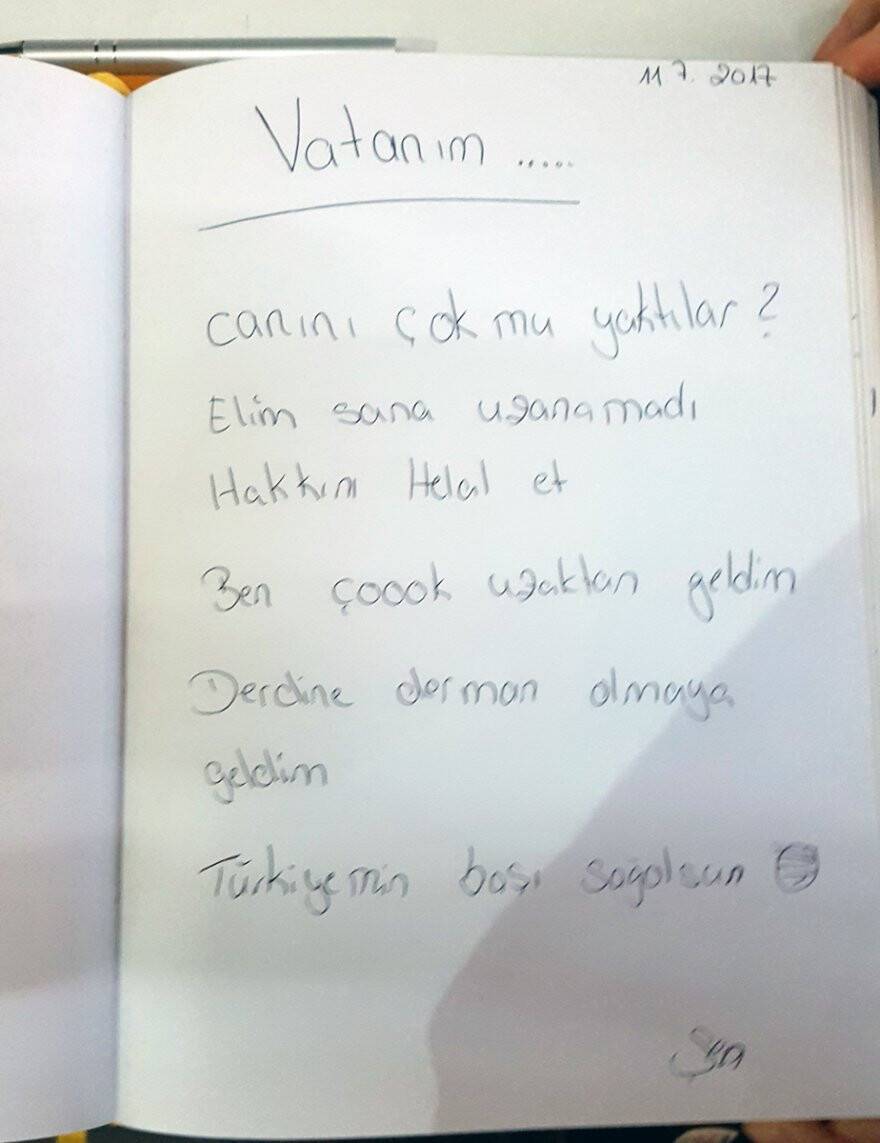 11 7. 2017
Vatanım .....
canını çok mu yaktılar?
Elim sana uzanamadı
Hakkını Helal et
Ben çoook uzaktan geldim
Derdine derman olmaya
geldim
Türkiyemin başı sağolsun